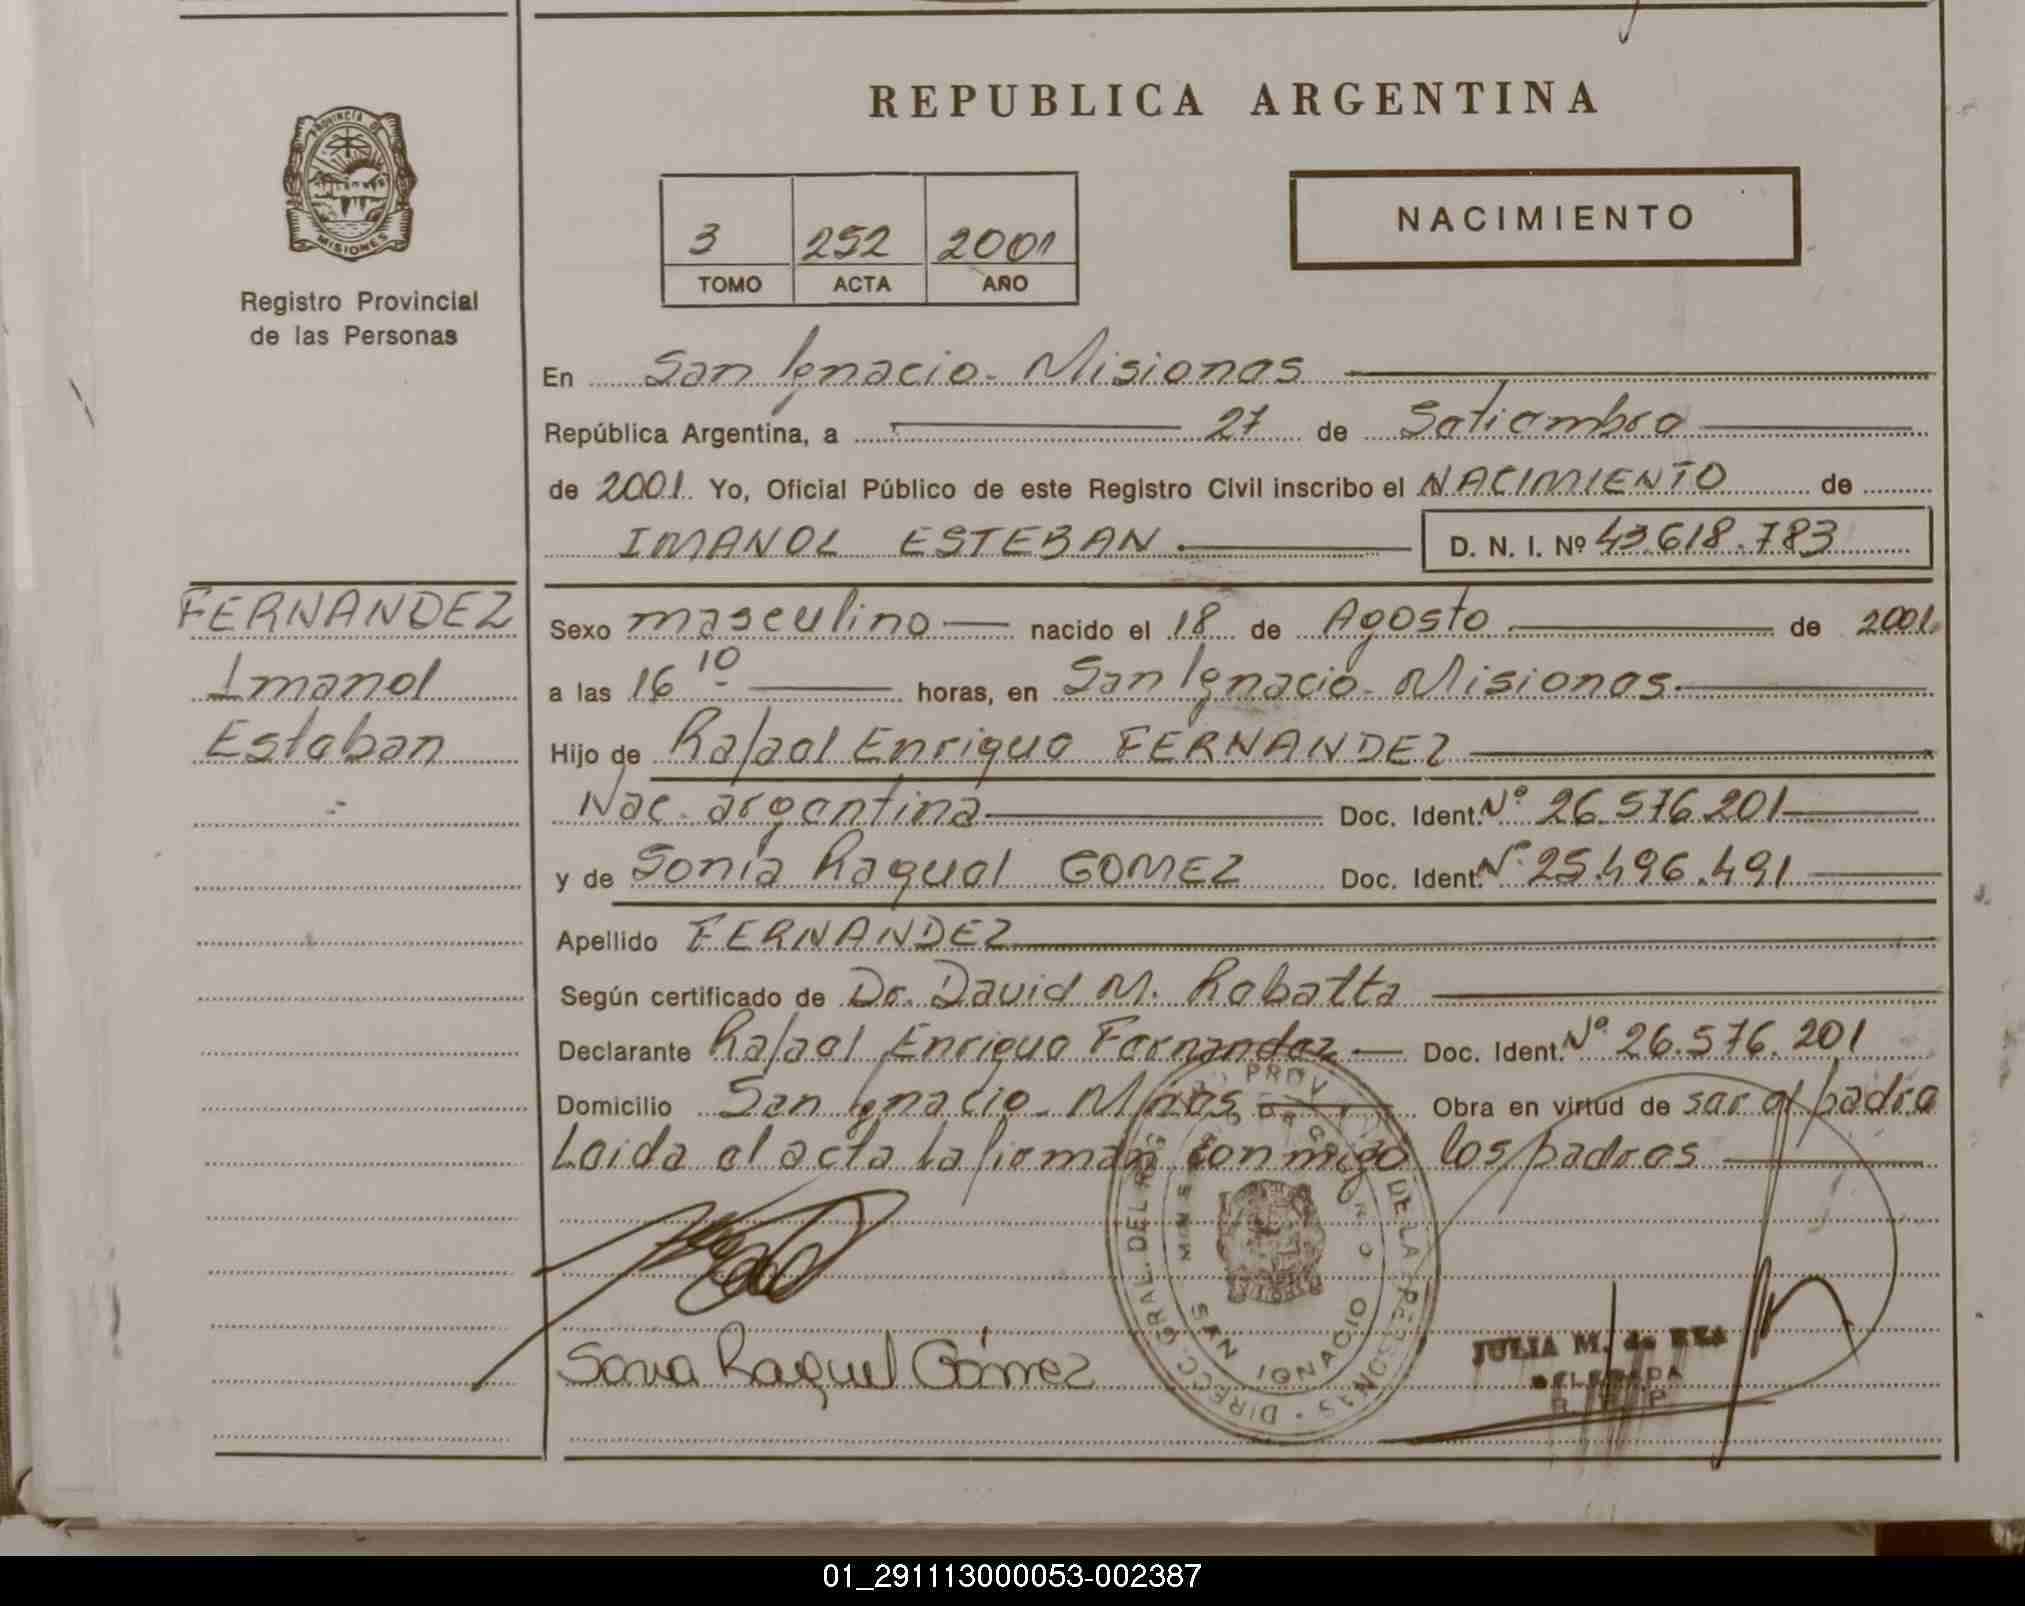 REPUBLICA ARGENTINA
PROVINCIA DE
MISIONES
Registro Provincial
de las Personas
3 252 2001
TOMO ACTA AÑO
NACIMIENTO
En San Ignacio - Misiones
República Argentina, a 27 de Setiembre
de 2001. Yo, Oficial Público de este Registro Civil inscribo el NACIMIENTO de
IMANOL ESTEBAN D. N. I. Nº 43.618.783
FERNANDEZ
Imanol
Esteban
Sexo masculino nacido el 18 de Agosto de 2001.
a las 16 10 horas, en San Ignacio - Misiones.
Hijo de Rafael Enrique FERNANDEZ
Nac. argentina Doc. Ident. Nº 26.576.201
y de Sonia Raquel GOMEZ Doc. Ident. Nº 25.496.491
Apellido FERNANDEZ
Según certificado de Dr. David M. Rabatta
Declarante Rafael Enrique Fernandez Doc. Ident. Nº 26.576.201
Domicilio San Ignacio - Mnes Obra en virtud de ser el padre
Leida el acta la firman conmigo los padres
Sonia Raquel Gómez
DIRECC. GRAL. DEL PROV. DE LAS PERSONAS
SAN IGNACIO
JULIA M. de
DELEGADA
R. P. P.
01_291113000053-002387